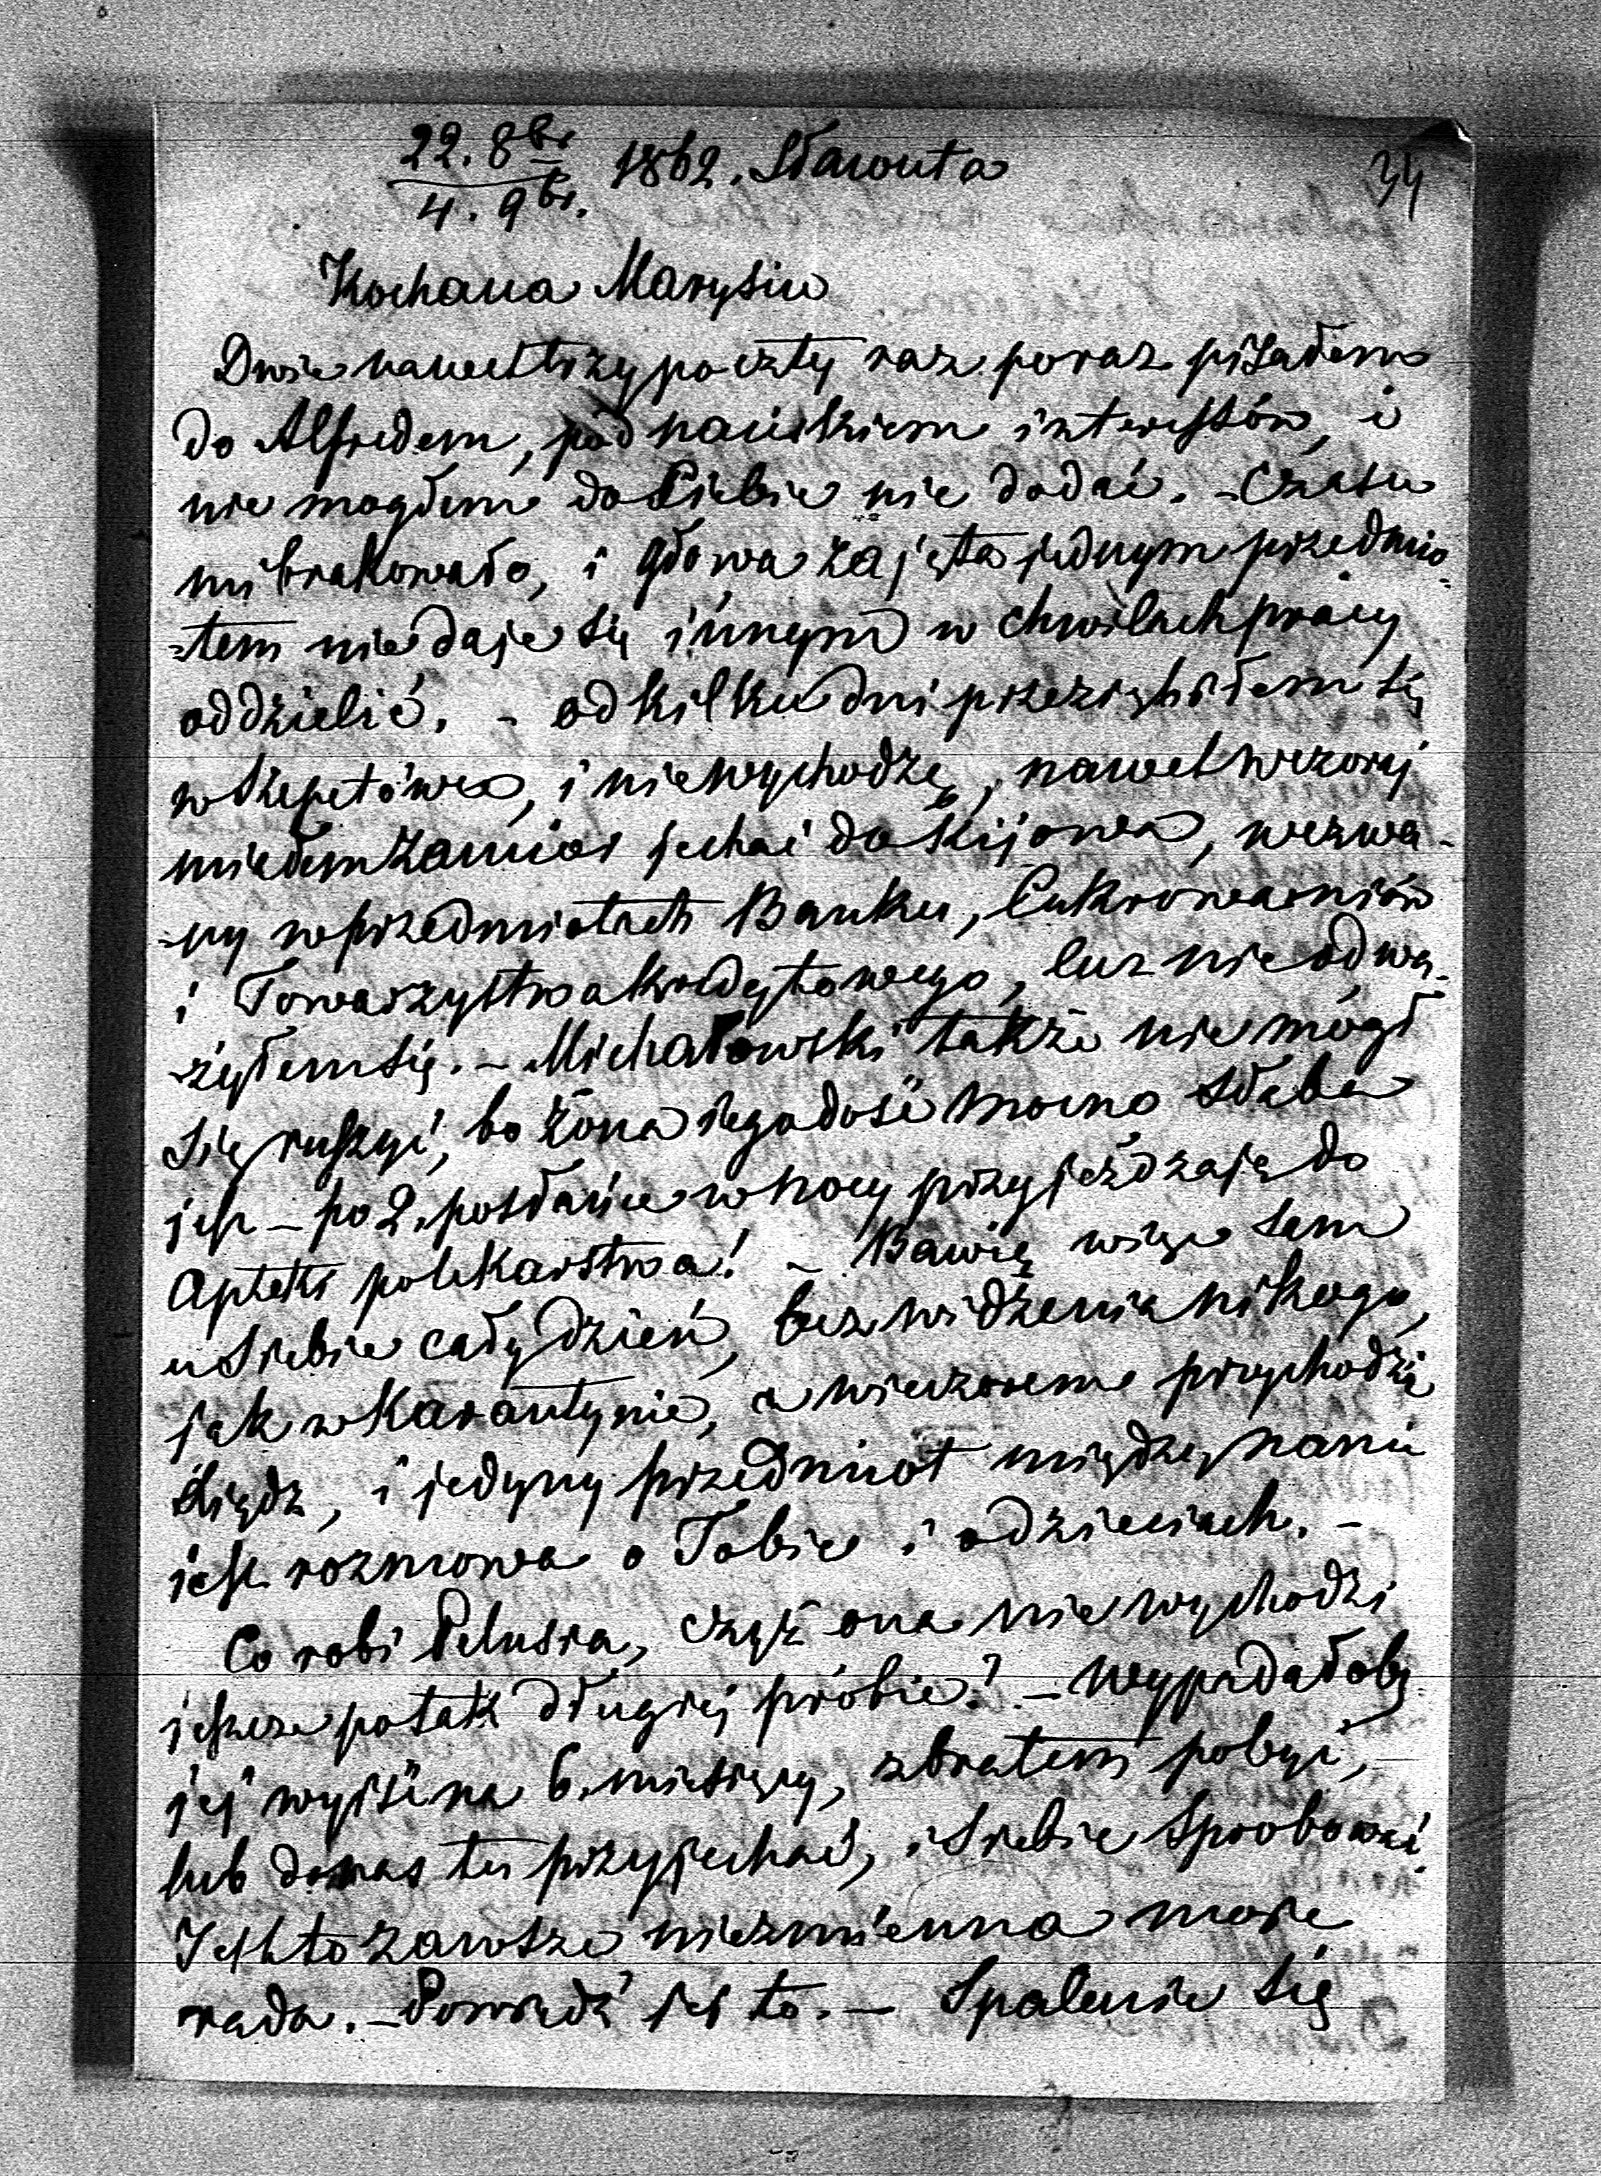 22. 8br 1862. Sławuta
4. 9br.
34
Kochana Marysiu
Dwie nawet trzy poczty raz poraz pisałem
do Alfredem, pod naciskiem interessów, i
nie mogłem do Ciebie nic dodać. – Czasu
mi brakowało, i głowa zajęta jednym przedmio-
-tem nie daje się innym w chwilach pracy
oddzielić. – od kilku dni przeziębiłem się
w Szepetówce, i nie wychodzę, nawet wczoraj
miałem zamiar jechać do Kijowa, wezwa-
-ny w przedmiotach Banku, Cukrowarniów
i Towarzystwa Kredytowego, lecz nie odwa-
-żyłem się. – Michałowski także nie mógł
się ruszyć, bo żona jego dość mocno słaba
jest – po 2. posłańce w nocy przyjeżdżają do
Apteki po lekarstwa! – Bawię więc sam
u siebie cały dzień, bez widzenia nikogo,
jak w Karantynie, a wieczorem przychodzi
Xiądz, i jedyny przedmiot między nami
jest rozmowa o Tobie i o dzieciach. –
Co robi Pelusia, czyż ona nie wychodzi
jeszcze po tak długiej próbie? – Wypadałoby
jej wyjść na 6. miesięcy, z bratem pobyć,
lub do nas tu przyjechać, i siebie spróbować
Jest to zawsze niezmienna moja
rada. – Powiedź jej to. – Spalenie się